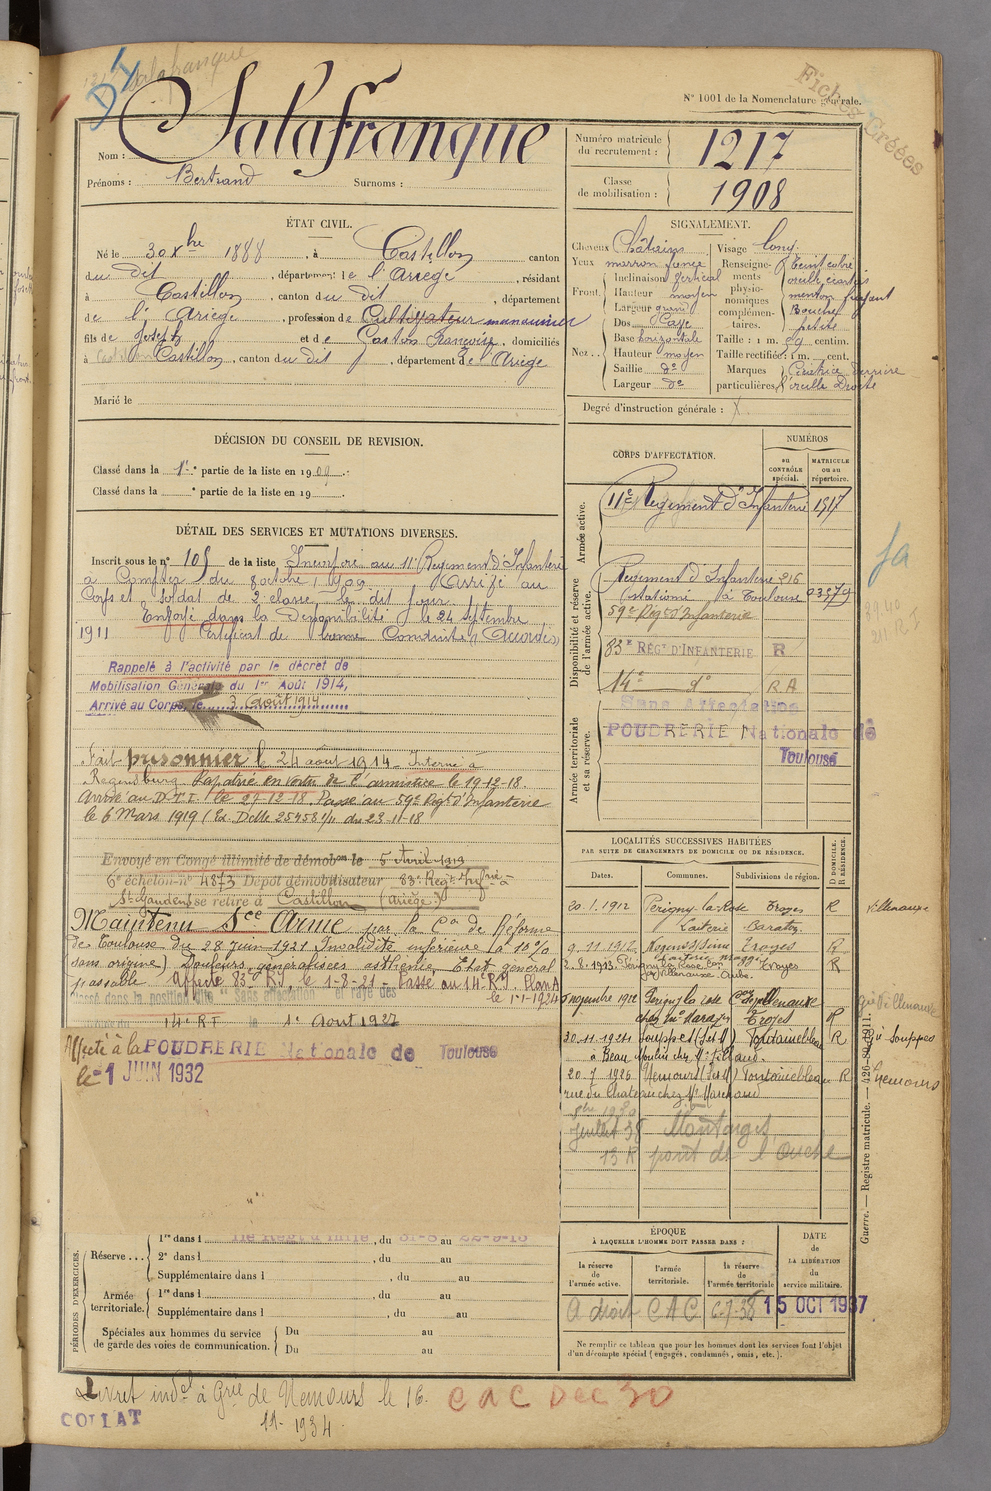 Salafranque
N° 1001 de la Nomenclature générale.
Fiches Créées
Nom : Salafranque
Prénoms : Bertrand Surnoms :
Numéro matricule du recrutement : 1217
Classe de mobilisation : 1908
ÉTAT CIVIL.
Né le 30 Xbre 1888, à Castillon canton
du dit, département de l'Ariège, résidant
à Castillon, canton du dit, département
de l'Ariège, profession de Cultivateur manœuvrier
fils de Joseph et de Caston Françoise, domiciliés
à Castillon, canton du dit, département de l'Ariège
Marié le
SIGNALEMENT.
Cheveux Châtains
Yeux marron foncé
Front. Inclinaison Vertical
Hauteur moyen
Largeur grand
Nez. Dos Cave
Base horizontale
Hauteur moyen
Saillie d°
Largeur d°
Visage long
Renseignements physionomiques complémentaires. Teint coloré
oreille écartées
menton fuyant
Bouche petite
Taille : 1 m. 59 centim.
Taille rectifiée : 1 m. cent.
Marques particulières Cicatrice derrière l'oreille Droite
Degré d'instruction générale :
DÉCISION DU CONSEIL DE REVISION.
Classé dans la 1re partie de la liste en 1909.
Classé dans la e partie de la liste en 19
DÉTAIL DES SERVICES ET MUTATIONS DIVERSES.
Inscrit sous le n° 105 de la liste Incorporé au 11e Régiment d'Infanterie
à Compter du 8 octobre 1909. Arrivé au
Corps et soldat de 2e classe le dit jour.
Envoyé dans la Disponibilité le 24 Septembre
1911 Certificat de bonne Conduite "Accordé"
Rappelé à l'activité par le décret de
Mobilisation Générale du 1er Août 1914,
Arrivé au Corps, le 3 Août 1914
Fait prisonnier le 24 août 1914 - Interné à
Regensburg. Rapatrié en vertu de l'armistice le 19-12-18.
Arrivé au D.T.I. le 29-12-18 Passé au 59e Régt d'Infanterie
le 6 Mars 1919
Envoyé en Congé illimité de démobon le 5 Avril 1919
6e échelon n° 4873 Dépôt démobilisateur 83e Régt Infrie
St Gaudens se retire à Castillon (Ariège)
Maintenu Sce Armé par la Con de Réforme
de Toulouse du 28 Juin 1921 Invalidité inférieure à 10%
sans origine) Douleurs généralisées asthénie, Etat général
passable. Affecté 83e RI, le 1-8-21 - Passé au 14e RI. Plan A
le 1-1-1924
Classé dans la position dite "Sans affectation" et rayé des
14e RI le 1er Août 1927
Affecté à la POUDRERIE Nationale de Toulouse
le 1 JUIN 1932
CORPS D'AFFECTATION.
NUMÉROS
au CONTRÔLE spécial.
MATRICULE ou au répertoire.
Armée active.
11e Régiment d'Infanterie 1917
Disponibilité et réserve de l'armée active.
Régiment d'Infanterie 216
stationé à Toulouse 03579
59e Régt d'Infanterie
83e REGt D'INFANTERIE R
14e d° RA
Armée territoriale et sa réserve.
Sans Affectation
POUDRERIE Nationale de
Toulouse
LOCALITÉS SUCCESSIVES HABITÉES
PAR SUITE DE CHANGEMENTS DE DOMICILE OU DE RÉSIDENCE.
Dates. Communes. Subdivisions de région. D DOMICILE. R RÉSIDENCE.
20.1.1912 Périgny-la-Rose Troyes R Villenauxe
Laiterie Baratte
9.11.1912 Nogent s/Seine Troyes R
2.8.1913. Périgny la Rose Troyes R
Villenauxe. Aube.
novembre 1912 Périgny la rose Con de Villenauxe
Troyes R
30.11.1921 Souppes (S et M) Fontainebleau R
20.7.1926 Nemours (S et M) Fontainebleau R
rue du Chateau chez Mr Marchand
Juillet 38 Montargis
13 R pont de l'ouche
gie Villenauxe
gie Souppes
Nemours
Guerre. — Registre matricule. — 426-80-1911.
PÉRIODES D'EXERCICES.
Réserve... 1re dans l 11e Régt d'Infie, du 31-8 au 22-9-13
2e dans l, du au
Supplémentaire dans l, du au
Armée territoriale. 1re dans l, du au
Supplémentaire dans l, du au
Spéciales aux hommes du service de garde des voies de communication. Du au
Du au
ÉPOQUE
À LAQUELLE L'HOMME DOIT PASSER DANS :
la réserve de l'armée active.
l'armée territoriale.
la réserve de l'armée territoriale
DATE de LA LIBÉRATION du service militaire.
A droit CAC 6-7-38 15 OCT 1937
Ne remplir ce tableau que pour les hommes dont les services font l'objet
d'un décompte spécial (engagés, condamnés, omis, etc.).
Livret indel à Gie de Nemours le 16.
11-1934.
CAC Dec 30
COLLAT